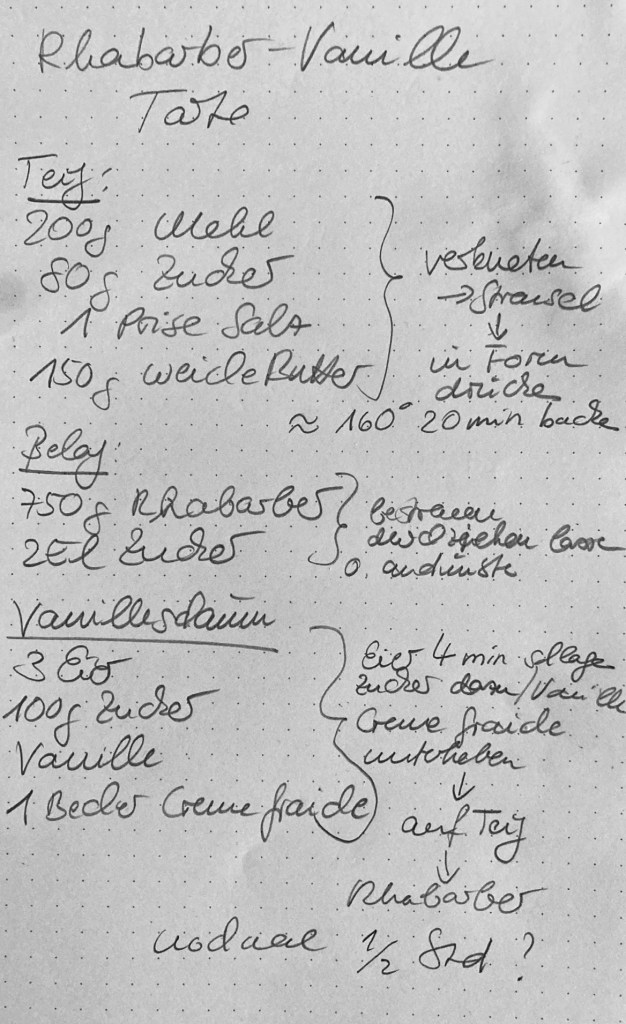 Rhabarber-Vanille
Tarte
Teig:
200g Mehl
80g Zucker
1 Prise Salz
150g weiche Butter
verkneten
→ Streusel
↓
in Form
drücke
≈ 160° 20 min backe
Belag:
750g Rhabarber
2El Zucker
bestreuen
durchziehen lasse
o. andünste
Vanilleschaum
3 Eier
100g Zucker
Vanille
1 Becher Creme fraiche
Eier 4 min schlage
Zucker dazu/Vanille
Creme fraiche
unterheben
↓
auf Teig
↓
Rhabarber
nochmal 1/2 Std ?